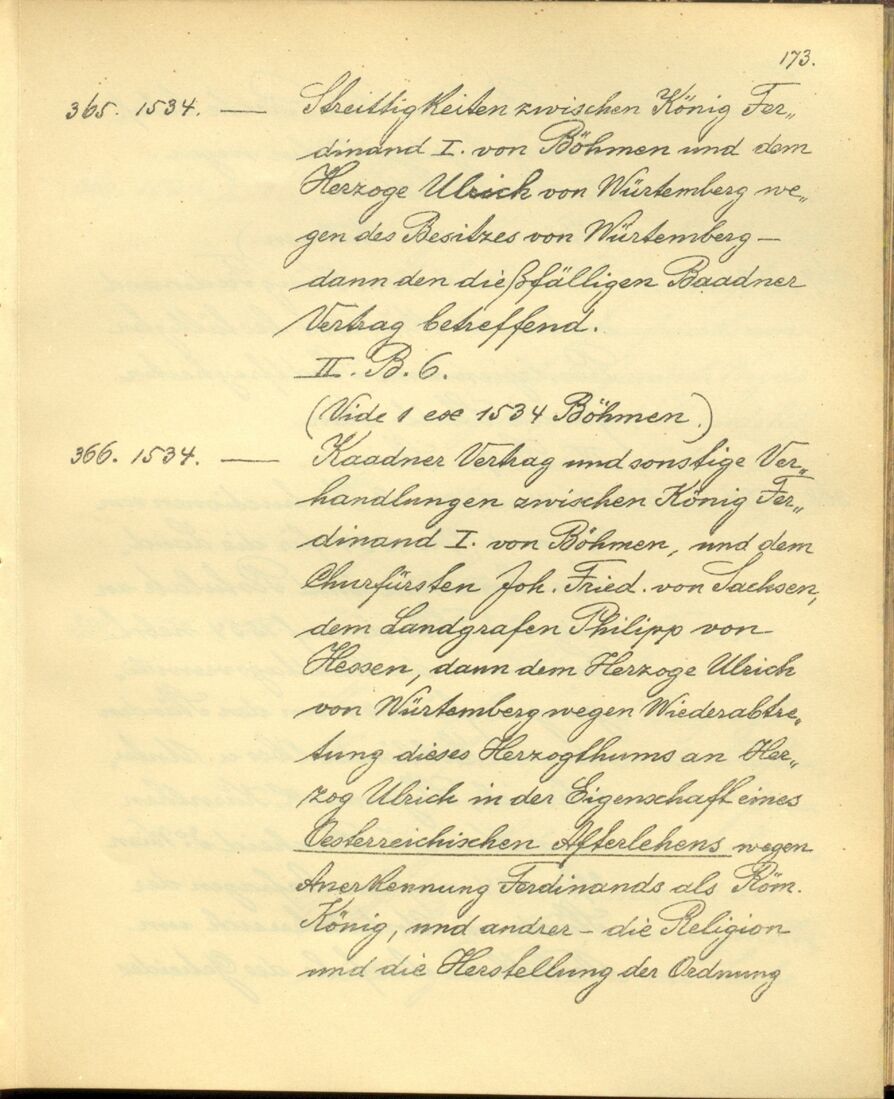 173.
365. 1534. — Streittigkeiten zwischen König Fer„
dinand I. von Böhmen und dem
Herzoge Ulrich von Würtemberg we„
gen des Besitzes von Würtemberg —
dann den dießfälligen Baadner
Vertrag betreffend.
II. B. 6.
(Vide 1 ex 1534 Böhmen.)
366. 1534. — Kaadner Vertrag und sonstige Ver„
handlungen zwischen König Fer„
dinand I. von Böhmen, und dem
Churfürsten Joh. Fried. von Sachsen,
dem Landgrafen Philipp von
Hessen, dann dem Herzoge Ulrich
von Würtemberg wegen Wiederabtre„
tung dieses Herzogthums an Her„
zog Ulrich in der Eigenschaft eines
Oesterreichischen Afterlehens wegen
Anerkennung Ferdinands als Röm.
König, und andrer – die Religion
und die Herstellung der Ordnung